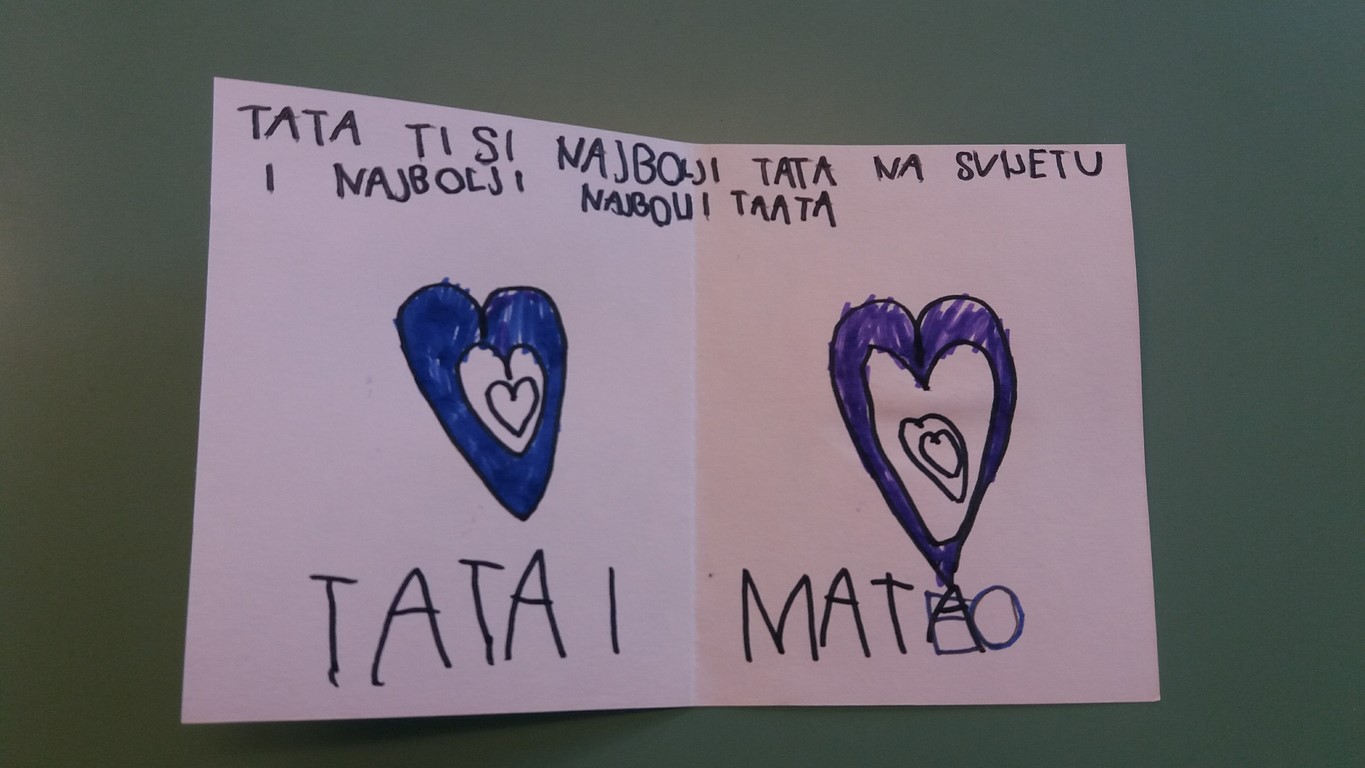 TATA TI SI NAJBOLJI TATA NA SVIJETU
I NAJBOLJI NAJBOLJI TAATA
TATA I MATEO